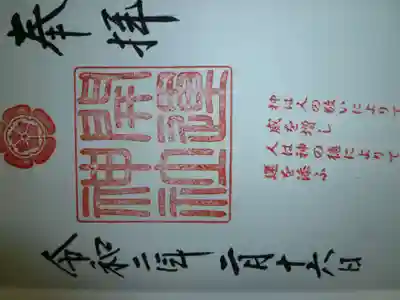 奉拝
神は人の敬いによりて
威を増し
人は神の徳によりて
運を添ふ
令和二年二月十六日